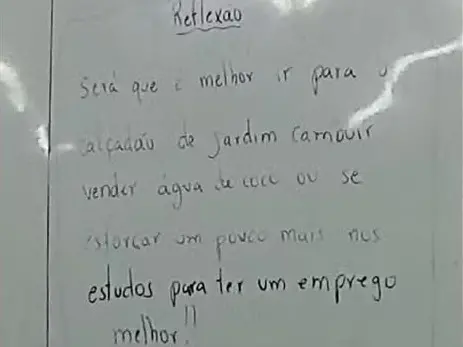 Reflexão
Será que é melhor ir para o
calçadão de Jardim Camburi
vender água de coco ou se
esforçar um pouco mais nos
estudos para ter um emprego
melhor!!